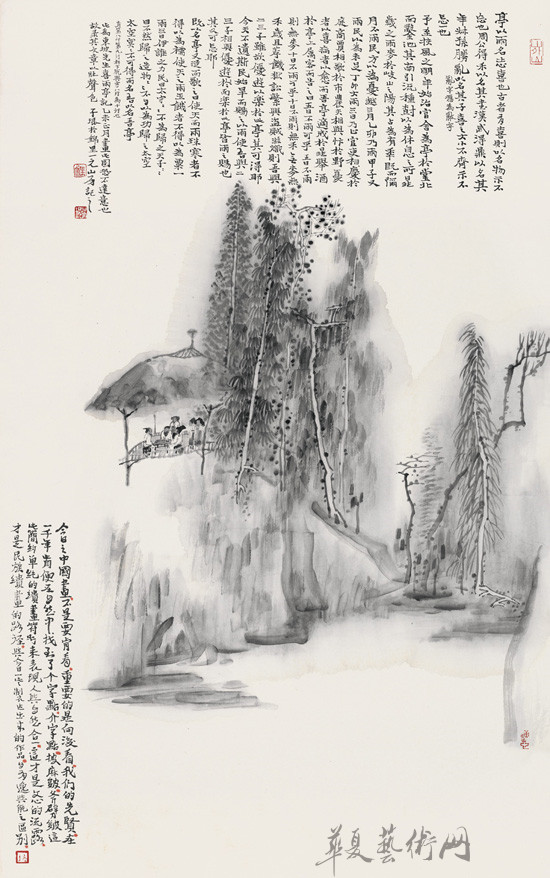 亭以雨名志喜也古者有喜則以名物示不
忘也周公得禾以名其書漢武得鼎以名其
年叔孫勝亂以名其子喜之大小不齊示不
忘一也
予至扶風之明年始治官舍為亭於堂北
而鑿池其南引流種樹以為休息之所是
歲之雨麥於岐山之陽其占為有年既而彌
月不雨民方以為憂越三月乙卯乃雨甲子又
雨民以為未足丁卯大雨三日乃止官吏相慶於
庭商賈相歌於市農夫相與忭於野憂
者以喜病者以愈而吾亭適成於是舉酒
於亭上屬客而告之曰五日不雨可乎曰五日不雨
則無麥十日不雨可乎曰十日不雨則無禾無麥無
禾歲且荐饑獄訟繁興盜賊滋熾則吾與
二三子雖欲優游以樂於此亭其可得耶
今天不遺斯民始旱而賜之以雨使吾與二
三子相與優遊於而樂於此亭皆雨之賜也
其又可忘耶
既以名亭又從而歌之曰使天而雨珠寒者不
得以為襦使天而雨玉饑者不得以為粟一
雨三日伊誰之力民曰太守々々不有歸之天子々々
曰不然歸之造物々々不自以為功歸之太空
太空冥々不可得而名吾以名吾亭
此為東坡先生喜雨亭記乙未六月畫此圖不達意也
故書其文章以壯聲色
今日之中國畫不是要前看重要的是向後看我們的先賢在
一千年前便在自然中找到了个字點介字點披麻皴斧劈皴這
些簡約單純的繪畫符號來表現人與自然合一這才是文心的流露
才是民族繪畫的路徑與今日
華夏藝術网